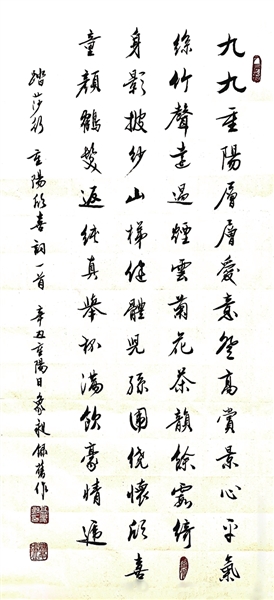 九九重陽層層愛意登高賞景心平氣
絲竹聲遠過煙雲菊花茶韻餘霞綺
身影披紗山梯健體兒孫圍繞懷欣喜
童顏鶴髮返純真舉杯滿飲豪情遞
踏莎行 重陽欣喜詞一首 辛丑重陽日 作